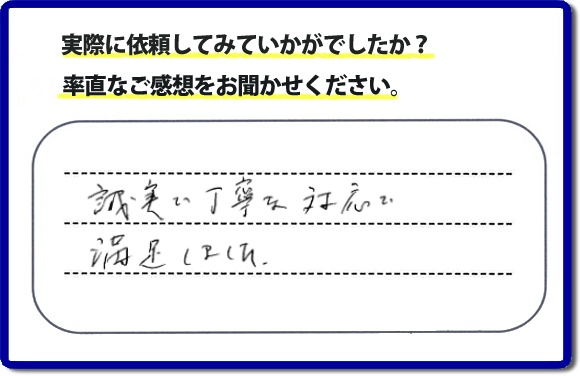 実際に依頼してみていかがでしたか？
率直なご感想をお聞かせください。
誠実で丁寧な対応で
満足しました.